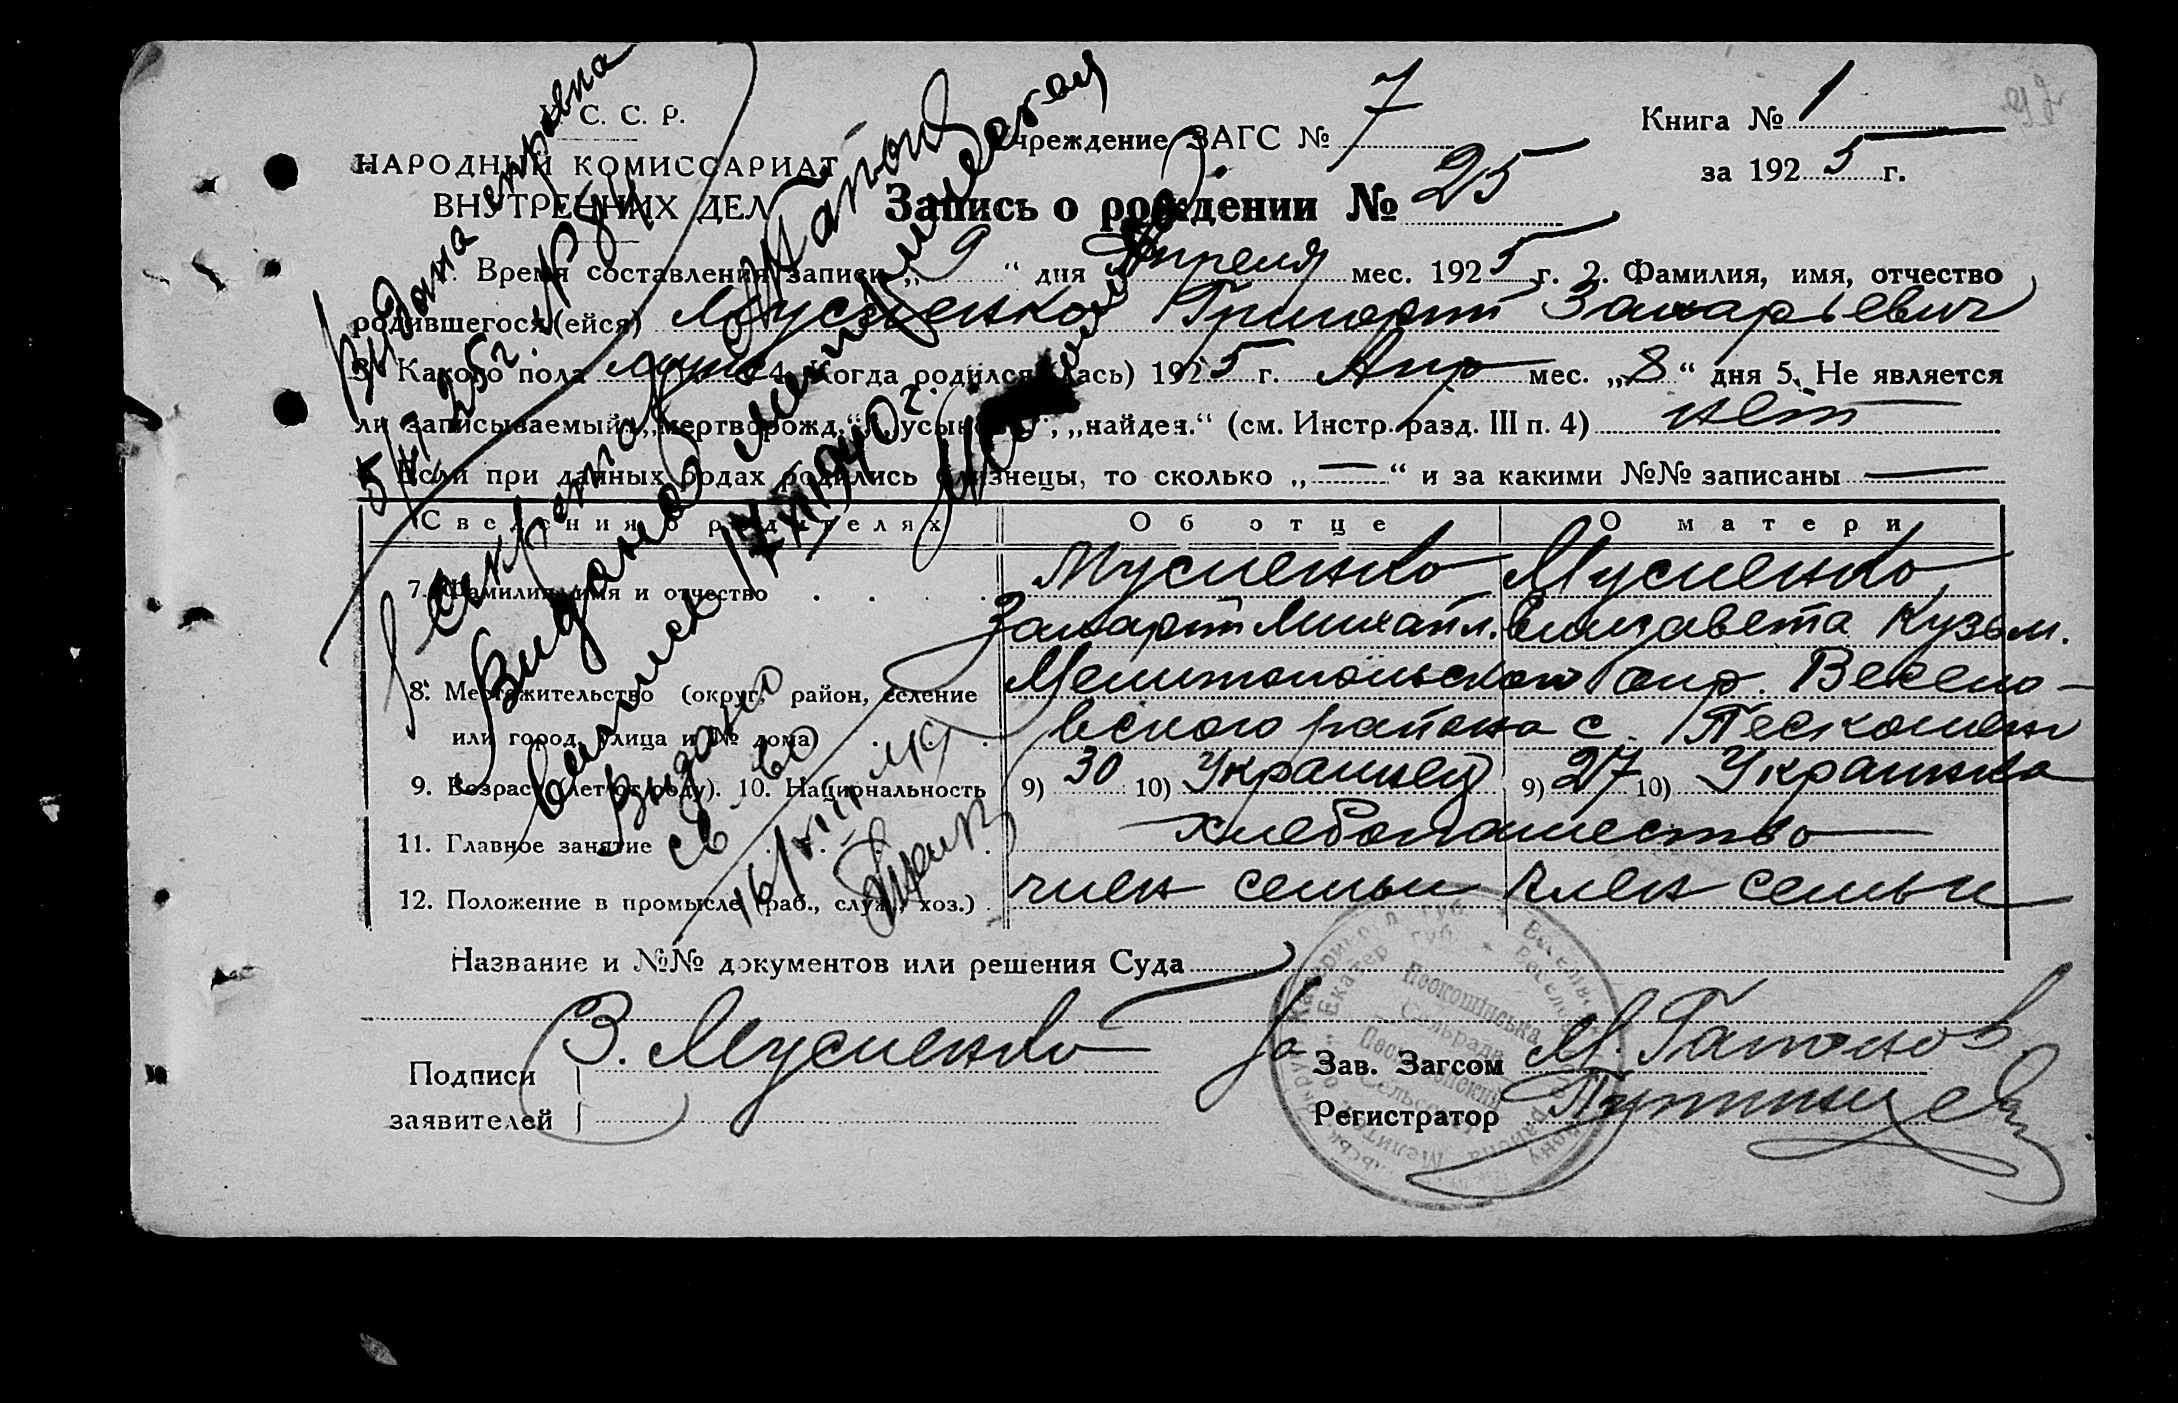 У. С. С. Р.
НАРОДНЫЙ КОМИССАРИАТ
ВНУТРЕННИХ ДЕЛ
Учреждение ЗАГС № 7
Книга № 1
за 1925 г.
Запись о рождении № 25
1. Время составления записи „9“ дня Апреля мес. 1925 г. 2. Фамилия, имя, отчество
родившегося (ейся) Мусиенко Григорий Захарьевич
3. Какого пола муж 4. Когда родился (лась) 1925 г. Апр мес. „8“ дня 5. Не является
ли записываемый: „мертворожд.“, „усыновл.“, „найден.“ (см. Инстр. разд. III п. 4) нет
6. Если при данных родах родились близнецы, то сколько „—“ и за какими №№ записаны —
Сведения о родителях Об отце О матери
7. Фамилия, имя и отчество Мусиенко Мусиенко
Захарий Михайл. Елизавета Кузьм.
8. Местожительство (округ, район, селение Мелитопольского окр. Веселов-
или город, улица и № дома) вского района с.
9. Возраст (лет от роду). 10. Национальность 9) 30 10) Украинец 9) 27 10) Украинка
11. Главное занятие хлебопашество
12. Положение в промысле (раб., служ., хоз.) член семьи член семьи
Название и №№ документов или решения Суда
Подписи
заявителей
З. Мусиенко
За Зав. Загсом М. Гапонов
Регистратор
Видана
5/V 25 г. №
Секретарь Гапонов
Видано
17/XII 1940 г.
Выдано
св-во
16/VIII